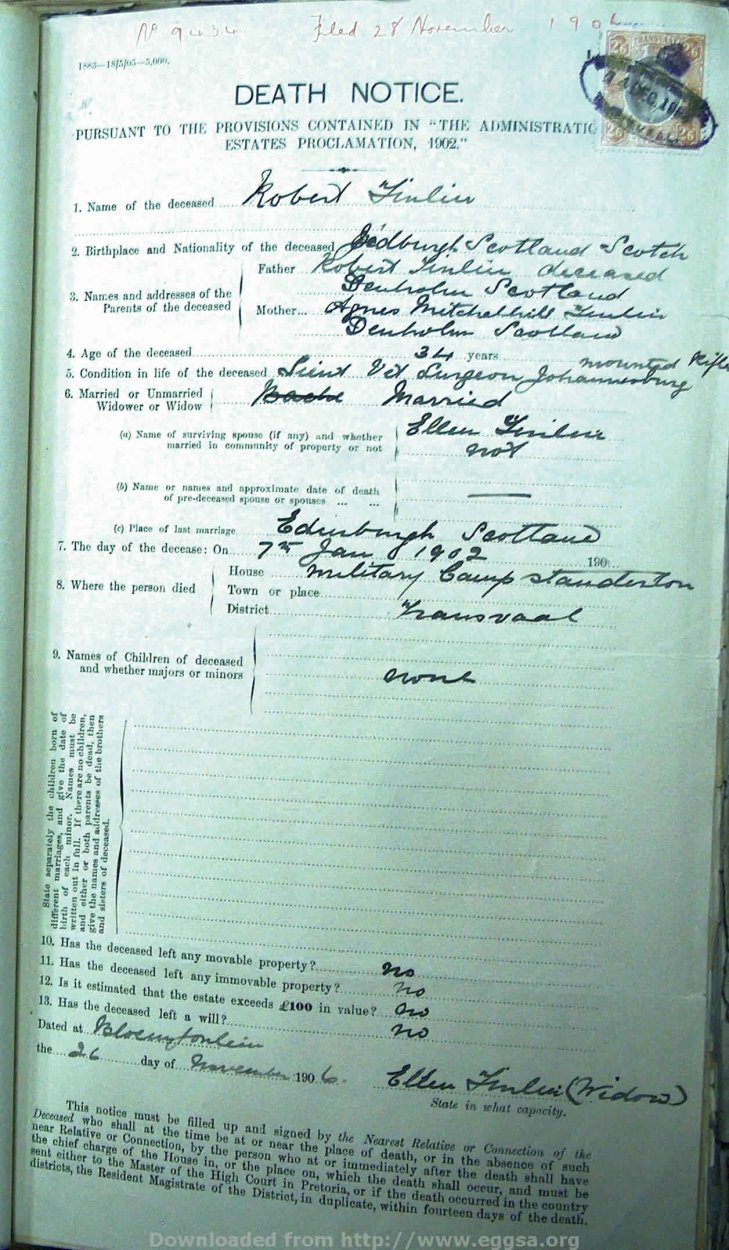 No 9434. Filed 28 November 190
1883—18/5/05—5,000.
DEATH NOTICE.
PURSUANT TO THE PROVISIONS CONTAINED IN "THE ADMINISTRATIO
ESTATES PROCLAMATION, 1902."
1. Name of the deceased Robert Tinlin
2. Birthplace and Nationality of the deceased Jedburgh Scotland Scotch
3. Names and addresses of the Parents of the deceased
Father Robert Tinlin deceased
Denholm Scotland
Mother... Agnes Mitchelhill Tinlin
Denholm Scotland
4. Age of the deceased 34 years
5. Condition in life of the deceased Lieut Vet Surgeon Johannesburg mounted Rifle
6. Married or Unmarried Married
Widower or Widow
(a) Name of surviving spouse (if any) and whether Ellen Tinlin
married in community of property or not not
(b) Name or names and approximate date of death
of pre-deceased spouse or spouses ... ...
(c) Place of last marriage Edinburgh Scotland
7. The day of the decease: On 7th Jan 1902 190 .
8. Where the person died
House Military Camp Standerton
Town or place
District Transvaal
9. Names of Children of deceased
and whether majors or minors none
State separately the children born of
different marriages, and give the date of
birth of each minor. Names must be
written out in full. If there are no children,
and either or both parents be dead, then
give the names and addresses of the brothers
and sisters of deceased.
10. Has the deceased left any movable property? no
11. Has the deceased left any immovable property? no
12. Is it estimated that the estate exceeds £100 in value? no
13. Has the deceased left a will? no
Dated at Bloemfontein
the 26 day of November 1906.
Ellen Tinlin (Widow)
State in what capacity.
This notice must be filled up and signed by the Nearest Relative or Connection of the
Deceased who shall at the time be at or near the place of death, or in the absence of such
near Relative or Connection, by the person who at or immediately after the death shall have
the chief charge of the House in, or the place on, which the death shall occur, and must be
sent either to the Master of the High Court in Pretoria, or if the death occurred in the country
districts, the Resident Magistrate of the District, in duplicate, within fourteen days of the death.
Downloaded from http://www.eggsa.org